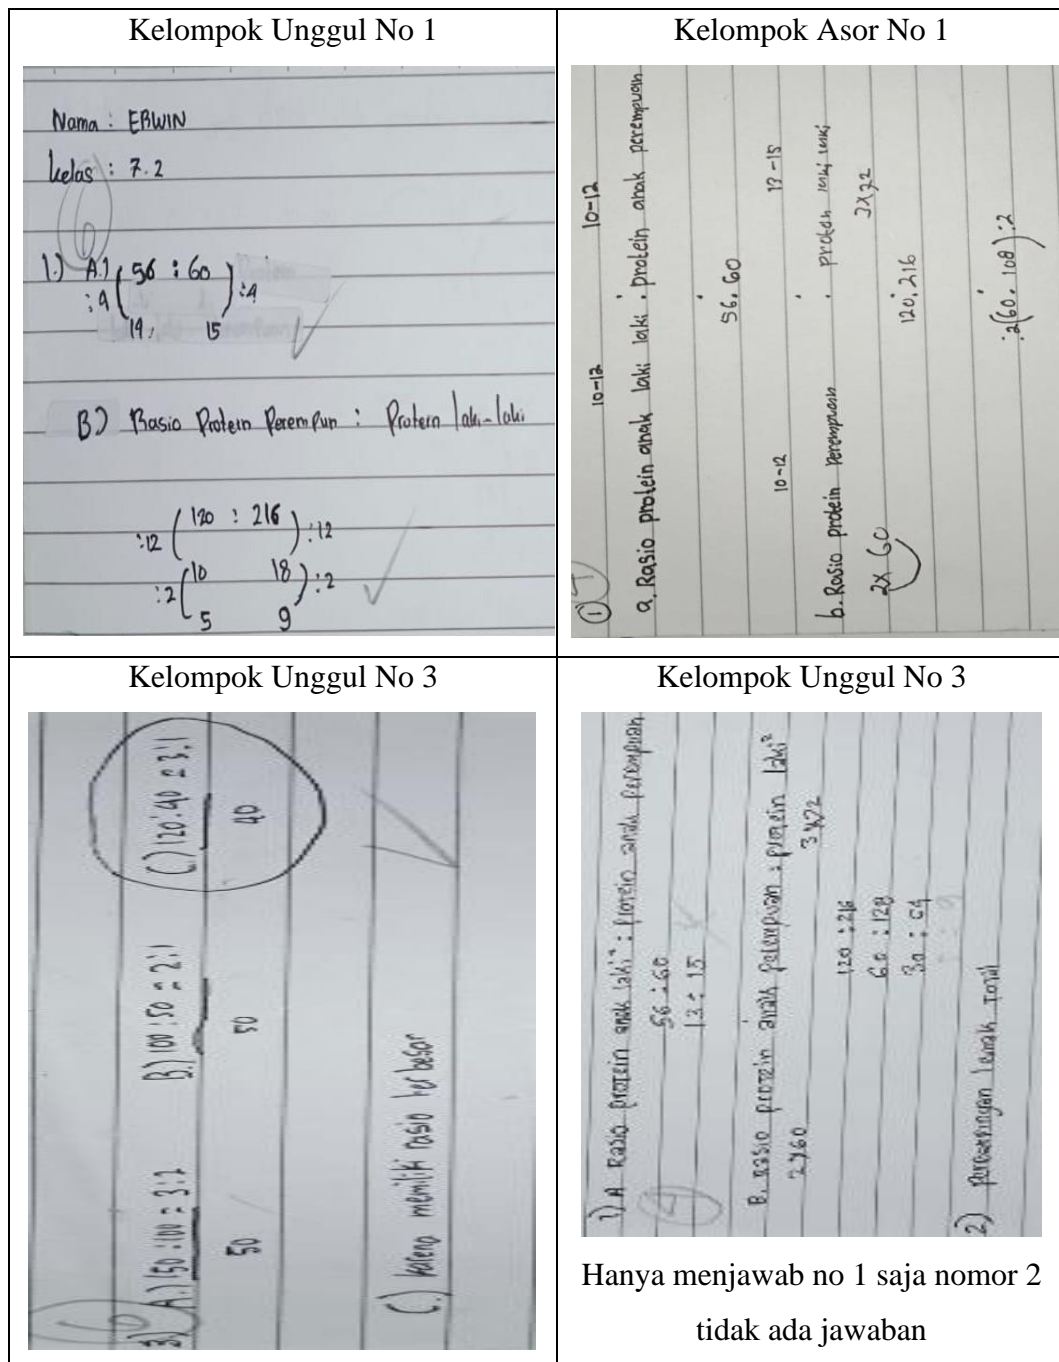 Kelompok Unggul No 1
Nama : ERWIN
kelas : 7.2
6
1.) A.) ( 56 : 60 )
:4 :4
14 : 15
B) Rasio Protein Perempun : Protein laki-laki
:12 ( 120 : 216 ) :12
:2 ( 10 18 ) :2
5 9
Kelompok Asor No 1
1
10-12 10-12
a. Rasio protein anak laki laki : protein anak perempuan
56 : 60
10-12 13-15
b. Rasio protein perempuan : protein laki laki
2x 60 3x72
120 : 216
:2(60 : 108) :2
Kelompok Unggul No 3
6
3) A.) 150 : 100 = 3:2 B.) 100 : 50 = 2:1 C.) 120 : 40 = 3:1
50 50 40
C.) karena memiliki rasio terbesar
Kelompok Unggul No 3
1) A Rasio protein anak laki² : protein anak perempuan
56 : 60
13 : 15
4
B. rasio protein anak perempuan : protein laki²
2x60 3x72
120 : 216
60 : 128
30 : 64
2) perbandingan lemak total
Hanya menjawab no 1 saja nomor 2
tidak ada jawaban